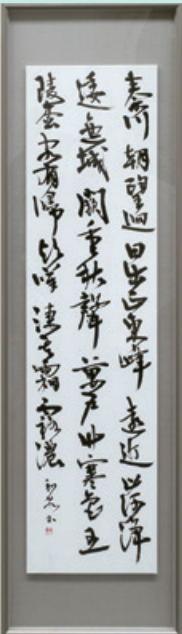 秦川朝望迥日出正東峰遠近山河淨
逶迤城闕重秋聲萬戶竹寒色五
陵松客有歸歟嘆淒其霜露濃